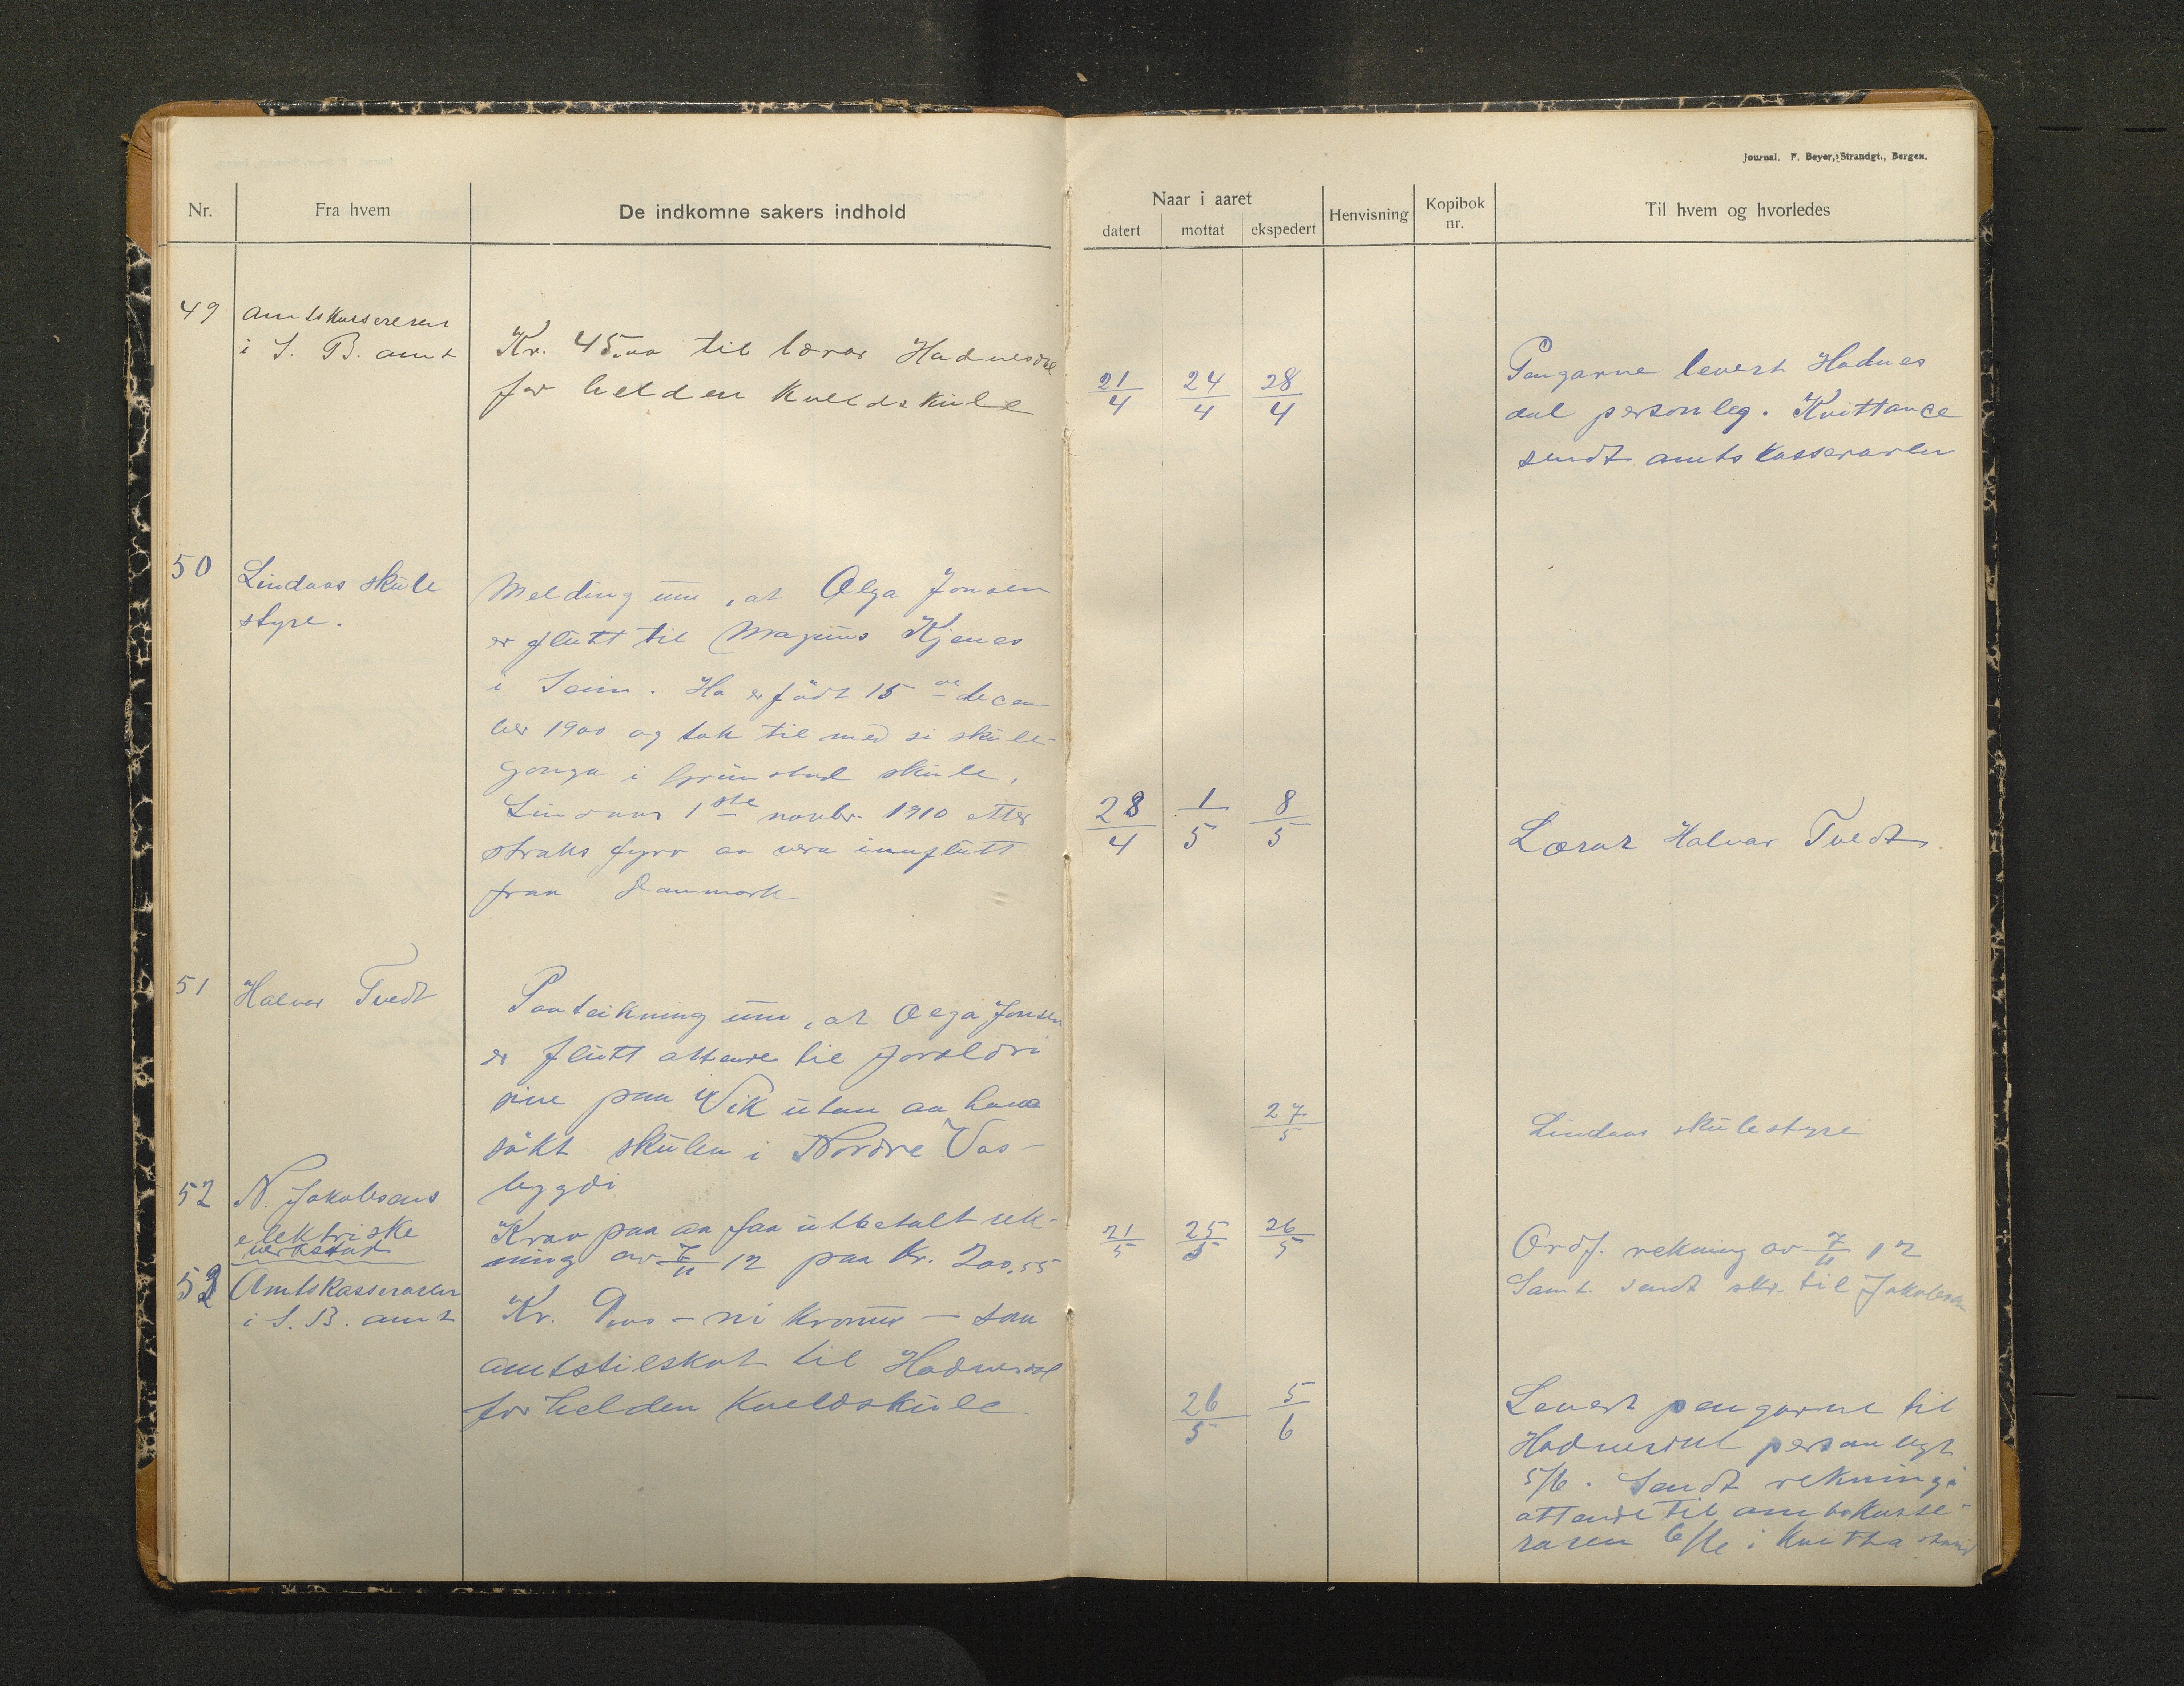 Journal. F. Beyer, Strandgt., Bergen.
Nr.
Fra hvem
De indkomne sakers indhold
Naar i aaret
datert
mottat
ekspedert
Henvisning
Kopibok nr.
Til hvem og hvorledes
49
Amtskassereren
i S. B. amt
Kr. 45,00 til lærar Hadnesdal
for helden kveldskule
21/4
24/4
28/4
Pengarne levert Hadnes
dal personleg. Kvittance
sendt amtskasseraren
50
Lindaas skule
styre.
Melding um, at Olga Jonsen
er flutt til Magnus Kjenes
i Seim. Ho er födt 15 de decem
ber 1900 og tok til med si skule-
gonga i Grimstad skule,
Lindaas 1ste novbr. 1910 etter
straks fyrr aa vera innflutt
fraa Danmark
28/4
1/5
8/5
Lærar Halvar Tvedt.
51
Halvar Tvedt
Paateikning um, at Olga Jonsen
er flutt attende til foreldri
sine paa Vik utan aa hava
sökt skulen i Nordre Vas-
bygdi
27/5
Lindaas skulestyre
52
N. Jakobsens
elektriske
verkstad
Krav paa aa faa utbetalt rek-
ning av 7/11 12 paa kr. 200,55
21/5
25/5
26/5
Ordf. rekning av 7/11 12
Samt. sendt skr. til Jakobsen
52
Amtskasseraren
i S. B. amt
Kr. 9,00 - ni kronur - som
amtstilskot til Hadnesdal
for helden kveldskule
26/5
5/6
Levert pengarne til
Hadnesdal personlegt
5/6. Sendt rekningi
attende til amtskasse-
raren 6/6 i kvitta stand